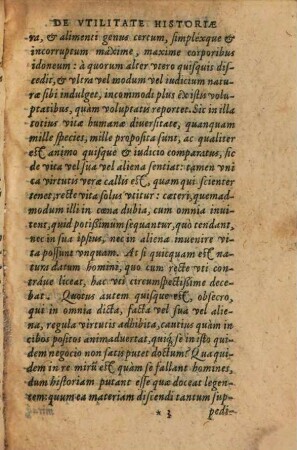 DE VTILITATE HISTORIÆ
ra, & alimenti genus certum, simplexque &
incorruptum maxime, maxime corporibus
idoneum: à quorum alter vtero quisquis dis-
cedit, & vltra vel modum vel iudicium natu-
ræ sibi indulget, incommodi plus ex istis vo-
luptatibus, quàm voluptatis reportet. Sic in illa
totius vitæ humanæ diuersitate, quanquam
mille species, mille proposita sunt, ac qualiter
est animo quisque & iudicio comparatus, sic
de vita vel sua vel aliena sentiat: tamen vni-
ca virtutis veræ callis est, quam qui scienter
tenet, recte vita solus vtitur: cæteri, quemad-
modum illi in cœna dubia, cum omnia inui-
tent, quid potißimum sequantur, quò tendant,
nec in sua ipsius, nec in aliena inuenire vi-
ta possunt vnquam. At si quicquam est na-
tum datum homini, quo cum recte vti con-
tráue liceat, hac vti circumspectißime dece-
bat. Quotus autem quisque est, obsecro,
qui in omnia dicta, facta vel sua vel alie-
na, regula virtutis adhibita, cautius quàm in
cibos positos animaduertat, quiq́; se in isto qui-
dem negocio non satis putet doctum? Qua qui-
dem in re mirũ est quàm se fallant homines,
dum historiam putant esse quæ doceat legen-
tem: quum ea materiam discendi tantum sup-
* 3 pedi-